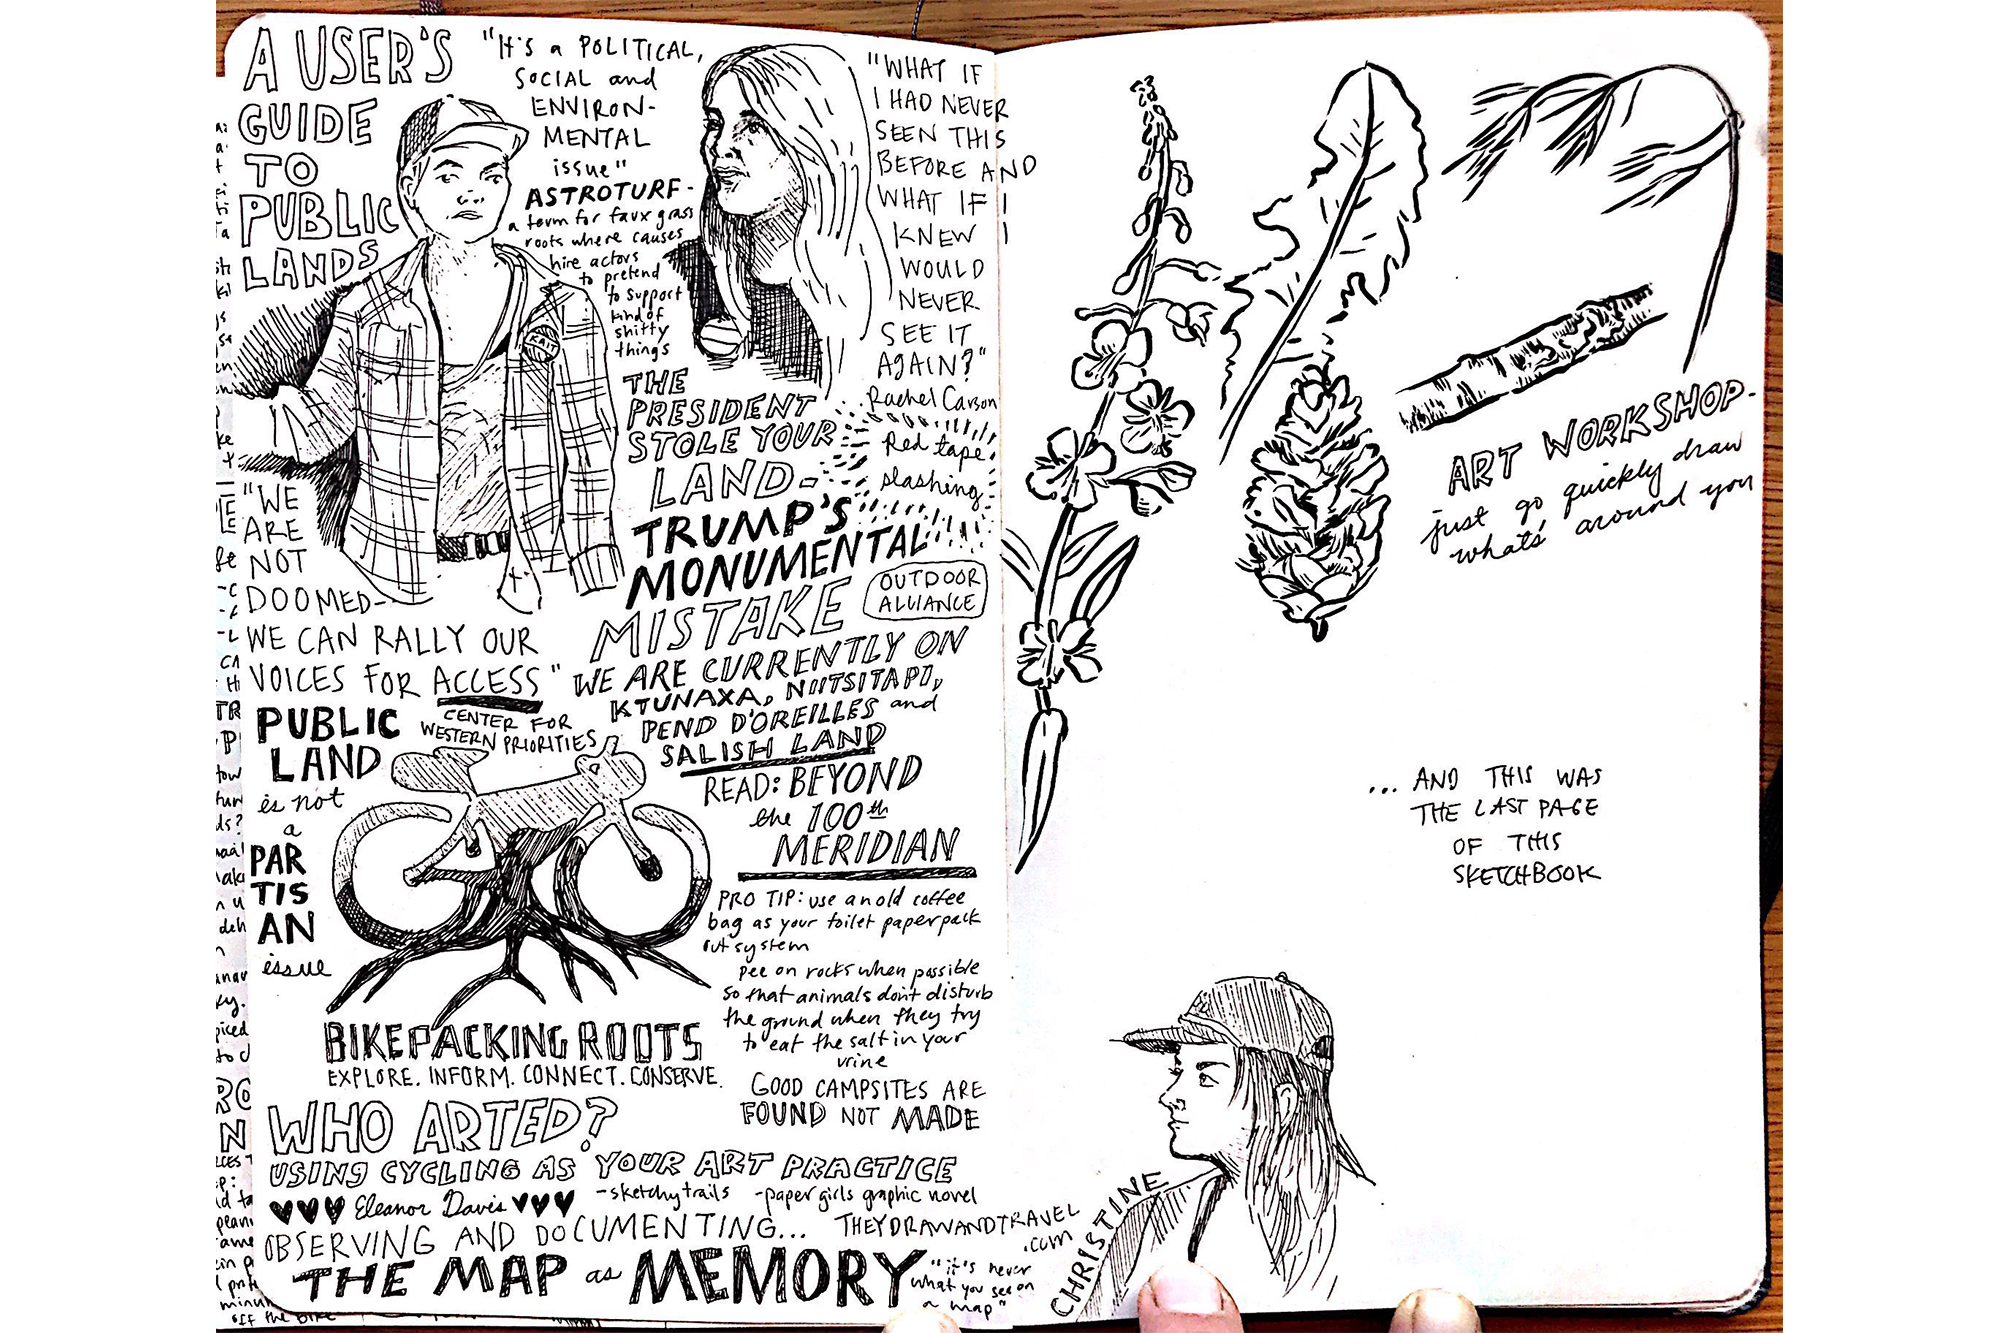 A USER'S
GUIDE
TO
PUBLIC
LANDS
"It's a POLITICAL,
SOCIAL and
ENVIRON-
MENTAL
issue"
ASTROTURF-
a term for faux grass
roots where causes
hire actors
to pretend
to support
kind of
shitty
things
KAIT
"WHAT IF
I HAD NEVER
SEEN THIS
BEFORE AND
WHAT IF I
KNEW I
WOULD
NEVER
SEE IT
AGAIN?"
Rachel Carson
THE
PRESIDENT
STOLE YOUR
LAND-
TRUMP'S
MONUMENTAL
MISTAKE
Red tape
slashing
OUTDOOR
ALLIANCE
"WE
ARE
NOT
DOOMED-
WE CAN RALLY OUR
VOICES FOR ACCESS"
CENTER FOR
WESTERN PRIORITIES
WE ARE CURRENTLY ON
KTUNAXA, NIITSITAPI,
PEND D'OREILLES and
SALISH LAND
READ: BEYOND
the 100th
MERIDIAN
PUBLIC
LAND
is not
a
PAR
TIS
AN
issue
PRO TIP: use an old coffee
bag as your toilet paper pack
out system
pee on rocks when possible
so that animals don't disturb
the ground when they try
to eat the salt in your
urine
GOOD CAMPSITES ARE
FOUND NOT MADE
BIKEPACKING ROOTS
EXPLORE. INFORM. CONNECT. CONSERVE.
WHO ARTED?
USING CYCLING AS YOUR ART PRACTICE
Eleanor Davis
-sketchytrails -paper girls graphic novel
OBSERVING AND DOCUMENTING...
THEYDRAWANDTRAVEL
.com
THE MAP as MEMORY
"it's never
what you see on
a map"
off the bike
ART WORKSHOP-
just go quickly draw
what's around you
...AND THIS WAS
THE LAST PAGE
OF THIS
SKETCHBOOK
CHRISTINE